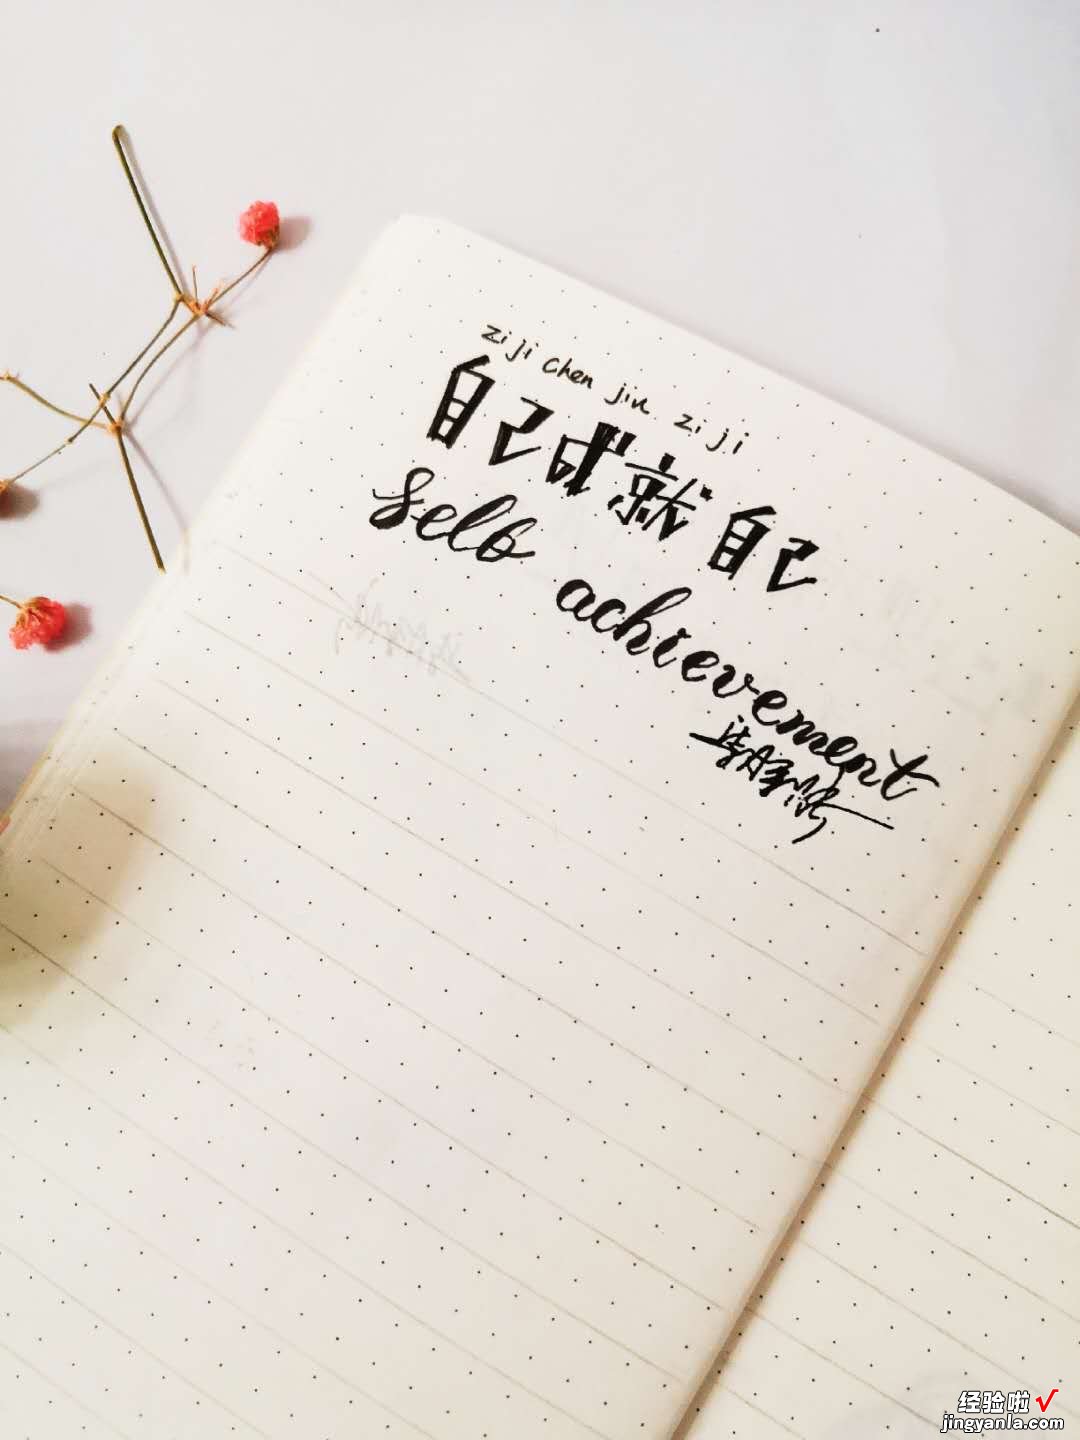 zi ji chen jiu zi ji
自己成就自己
self achievement
经验啦√
jingyanla.com